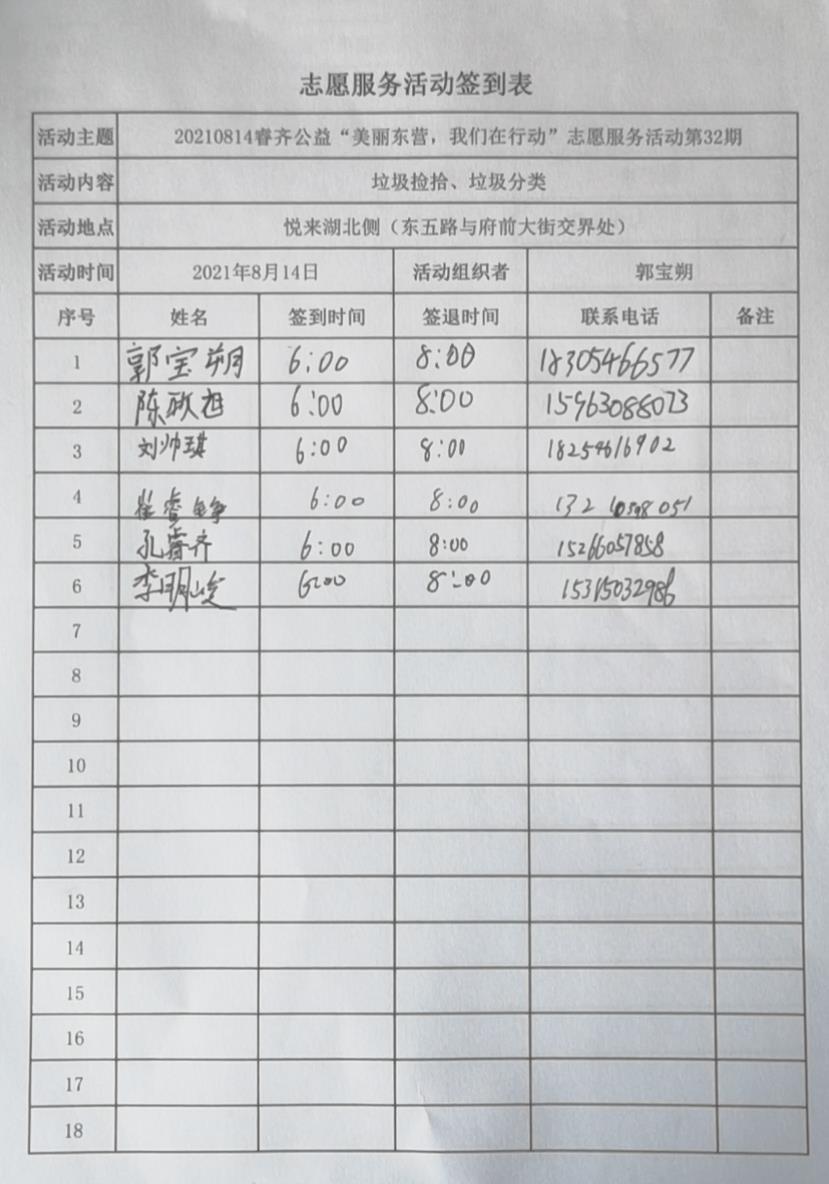 志愿服务活动签到表
活动主题 20210814睿齐公益“美丽东营，我们在行动”志愿服务活动第32期
活动内容 垃圾捡拾、垃圾分类
活动地点 悦来湖北侧（东五路与府前大街交界处）
活动时间 2021年8月14日 活动组织者 郭宝朔
序号 姓名 签到时间 签退时间 联系电话 备注
1 郭宝朔 6:00 8:00 18305466577
2 陈 6:00 8:00 15963088073
3 刘帅琪 6:00 8:00 18254616902
4 崔睿 6:00 8:00
5 孔睿齐 6:00 8:00 15266057858
6 李明峻 6:00 8:00 15315032986
7
8
9
10
11
12
13
14
15
16
17
18